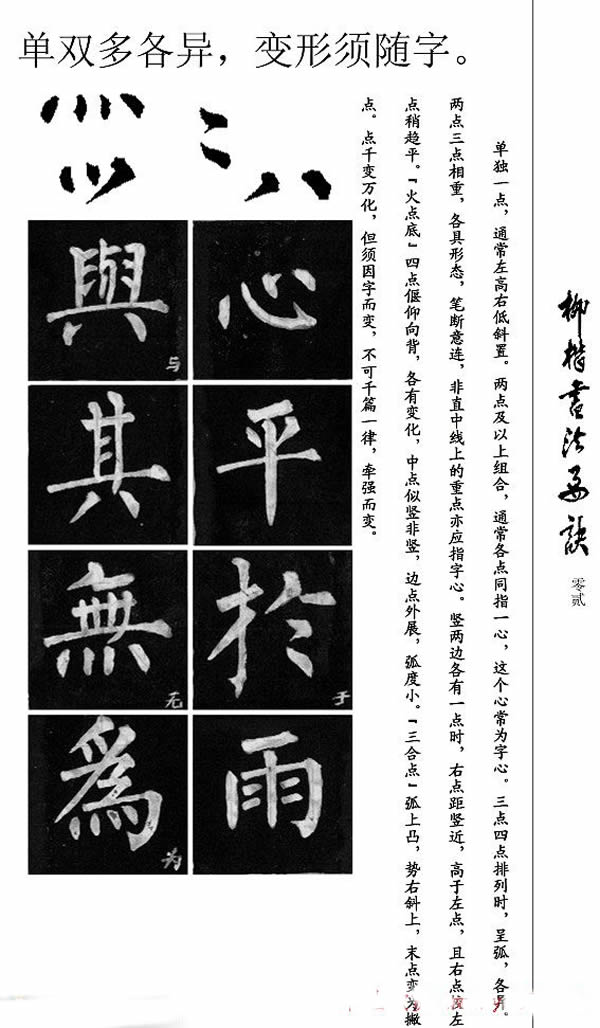 单双多各异，变形须随字。
柳楷书法要诀
零贰
单独一点，通常左高右低斜置。两点及以上组合，通常各点同指一心，这个心常为字心。三点四点排列时，呈弧，各异。
两点三点相重，各具形态，笔断意连，非直中线上的重点亦应指字心。竖两边各有一点时，右点距竖近，高于左点，且右点 左
点稍趋平。「火点底」四点偃仰向背，各有变化，中点似竖非竖，边点外展，弧度小。「三合点」弧上凸，势右斜上，末点变为撇
点。点千变万化，但须因字而变，不可千篇一律，牵强而变。
心
平
於
于
雨
與
与
其
無
无
為
为